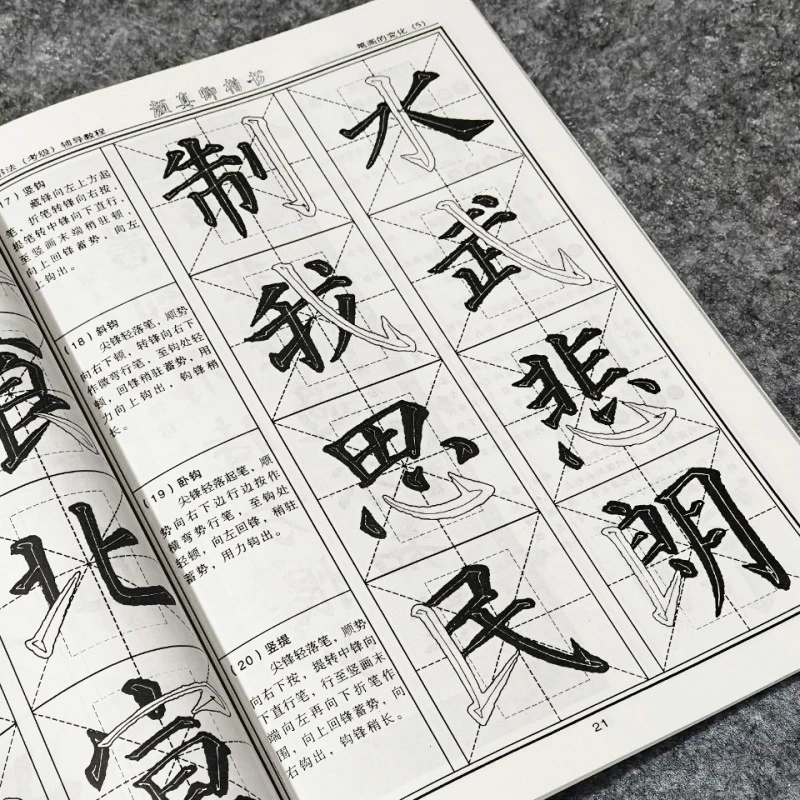 笔画的变化（5）
颜真卿楷书
法（考级）辅导教程
7）竖钩
藏锋向左上方起
笔，折笔转锋向右按，
提笔转中锋向下直行，
至竖画末端稍驻顿，
向上回锋蓄势，向左
上钩出。
（18）斜钩
尖锋轻落笔，顺势
向右下顿，转锋向右下
作微弯行笔，至钩处轻
顿，回锋稍驻蓄势，用
力向上钩出，钩锋稍
长。
（19）卧钩
尖锋轻落起笔，顺
势向右下边行边按作
横弯势行笔，至钩处
轻顿，向左回锋，稍驻
蓄势，用力钩出。
（20）竖提
尖锋轻落笔，顺势
向右下按，提转中锋向
下直行笔，行至竖画末
端向左再向下折笔作
围，向上回锋蓄势，向
右钩出，钩锋稍长。
制 水
我 武
思 悲
民 朗
食
北
21